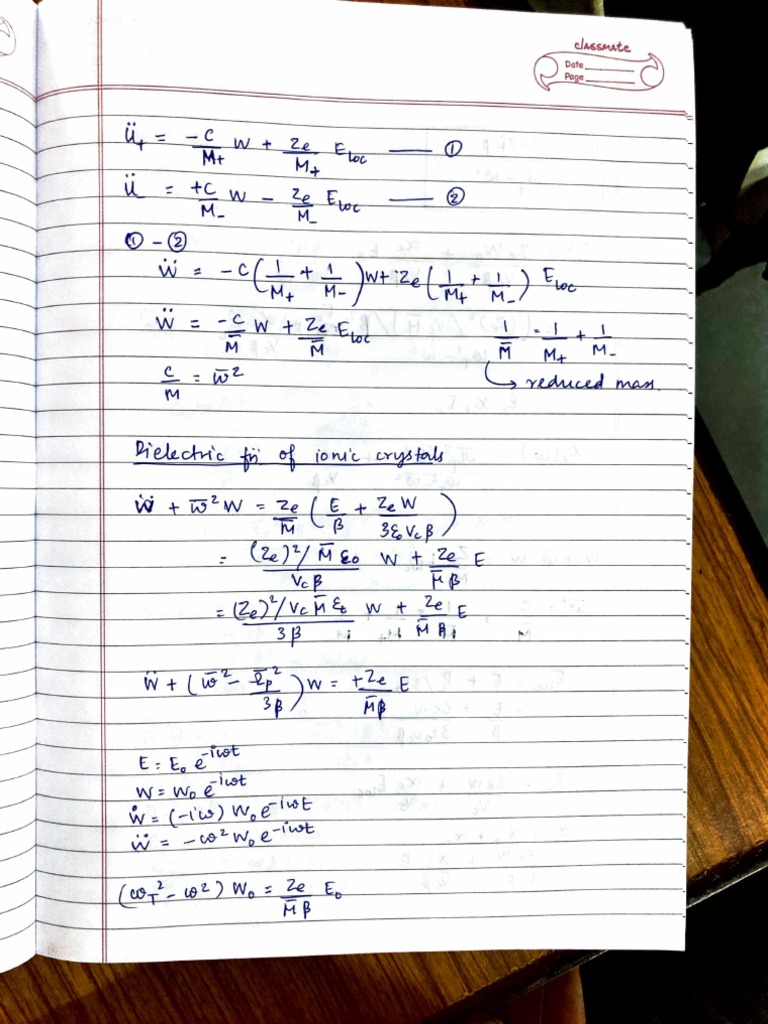 classmate
Date
Page
ü₊ = -C/M₊ W + Ze/M₊ E_loc —— ①
ü = +C/M₋ W - Ze/M₋ E_loc —— ②
① - ②
Ẅ = -C(1/M₊ + 1/M₋)W + Ze(1/M₊ + 1/M₋) E_loc
Ẅ = -C/M̄ W + Ze/M̄ E_loc 1/M̄ = 1/M₊ + 1/M₋
C/M = ω̄² ↳ reduced mass.
Dielectric fⁿ. of ionic crystals
Ẅ + ω̄²W = Ze/M̄ (E/β + ZeW/3ε₀V_cβ)
= (Ze)²/M̄ε₀ / V_cβ W + Ze/M̄β E
= (Ze)²/V_c M̄ ε_t / 3β W + Ze/M̄β E
Ẅ + (ω̄² - Ω̄_p²/3β)W = +Ze/M̄β E
E = E₀ e^{-iωt}
W = W₀ e^{-iωt}
Ẇ = (-iω) W₀ e^{-iωt}
Ẅ = -ω² W₀ e^{-iωt}
(ω_T² - ω²) W₀ = Ze/M̄β E₀